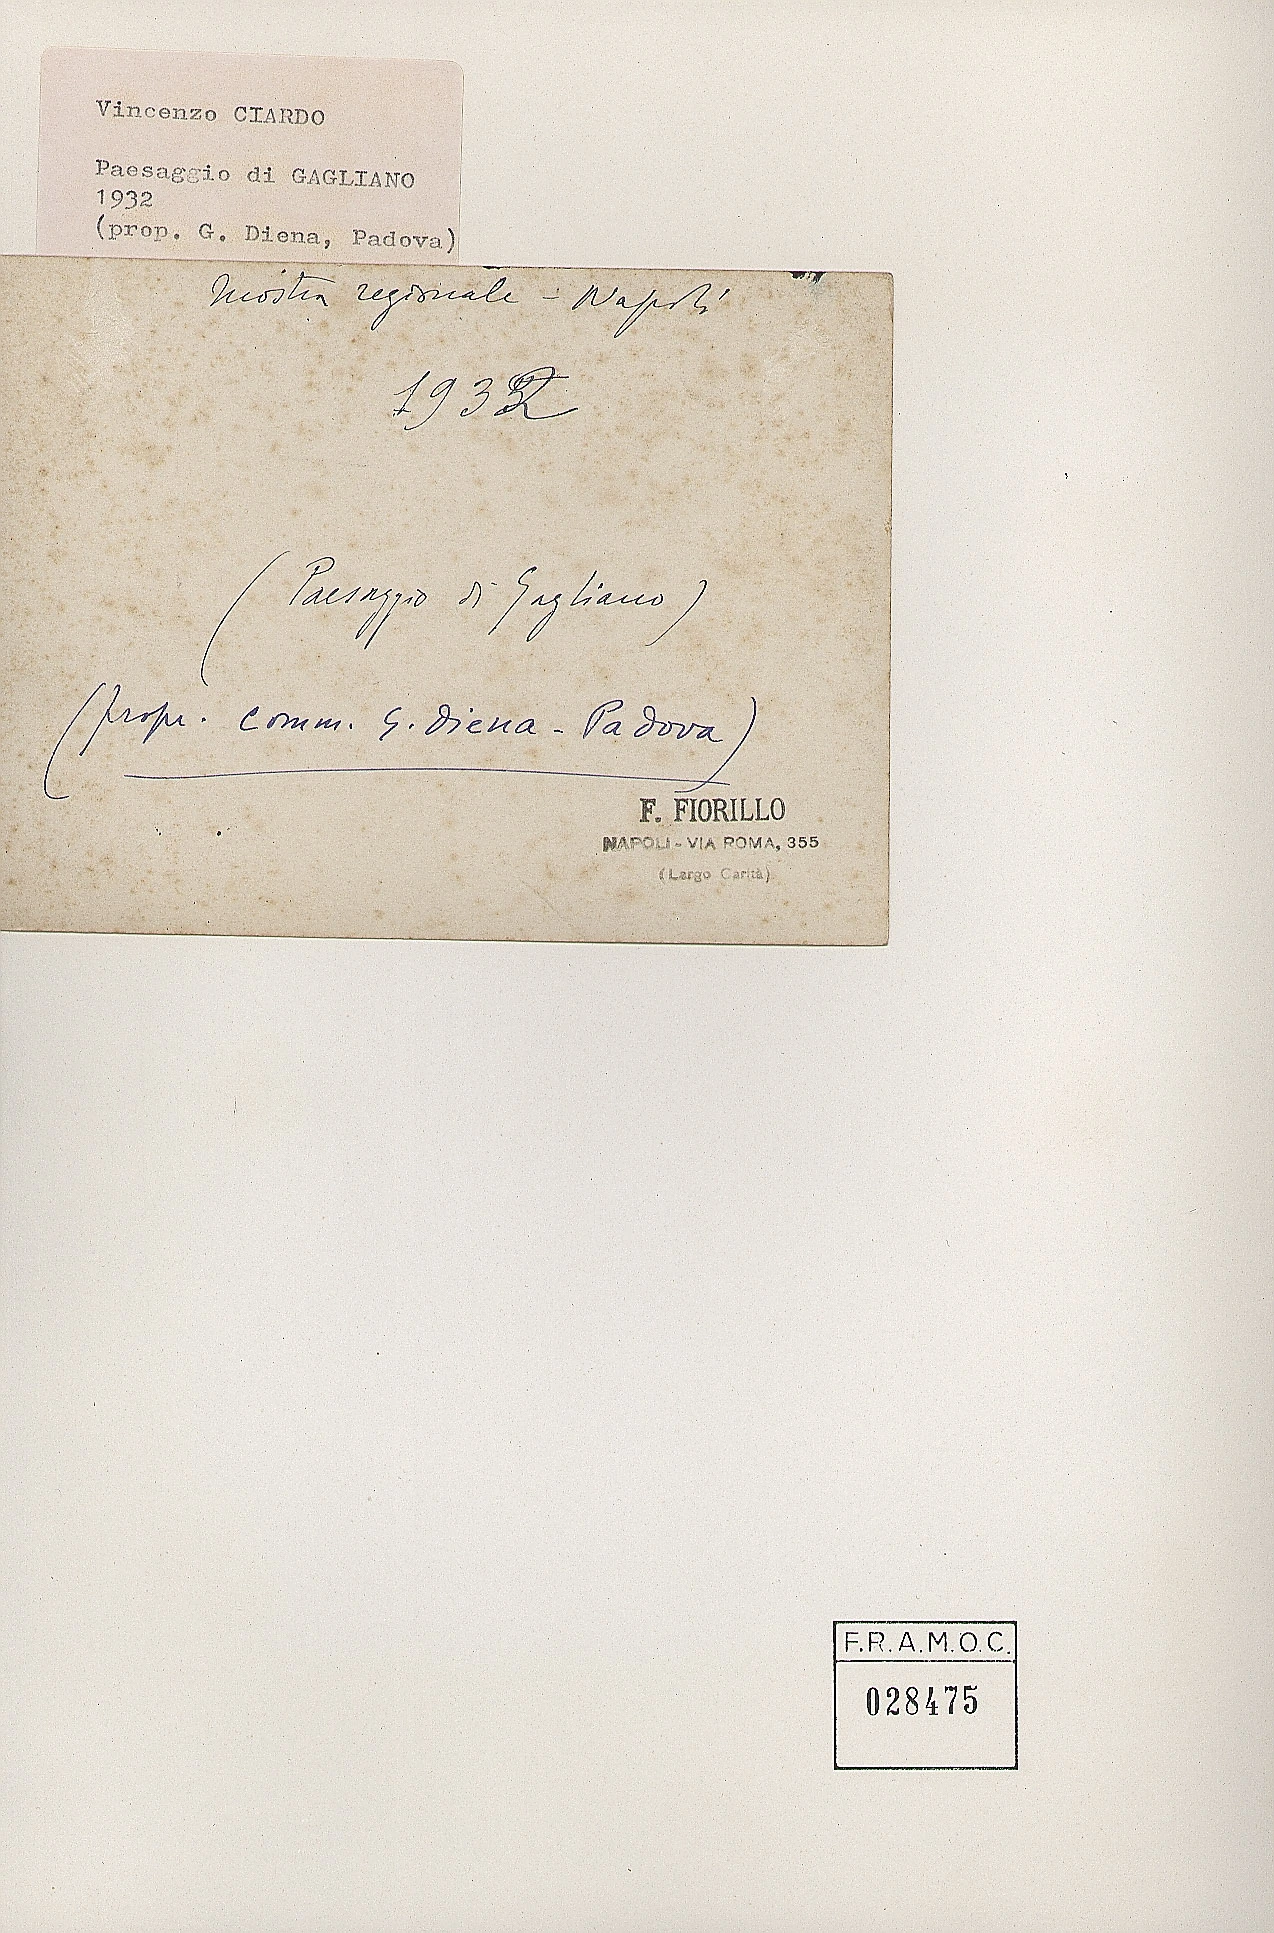 Vincenzo CIARDO
Paesaggio di GAGLIANO
1932
(prop. G. Diena, Padova)
Mostra regionale - Napoli
1932
(Paesaggio di Gagliano)
(propr. comm. G. Diena - Padova)
F. FIORILLO
NAPOLI - VIA ROMA, 355
(Largo Carità)
F.R.A.M.O.C.
028475